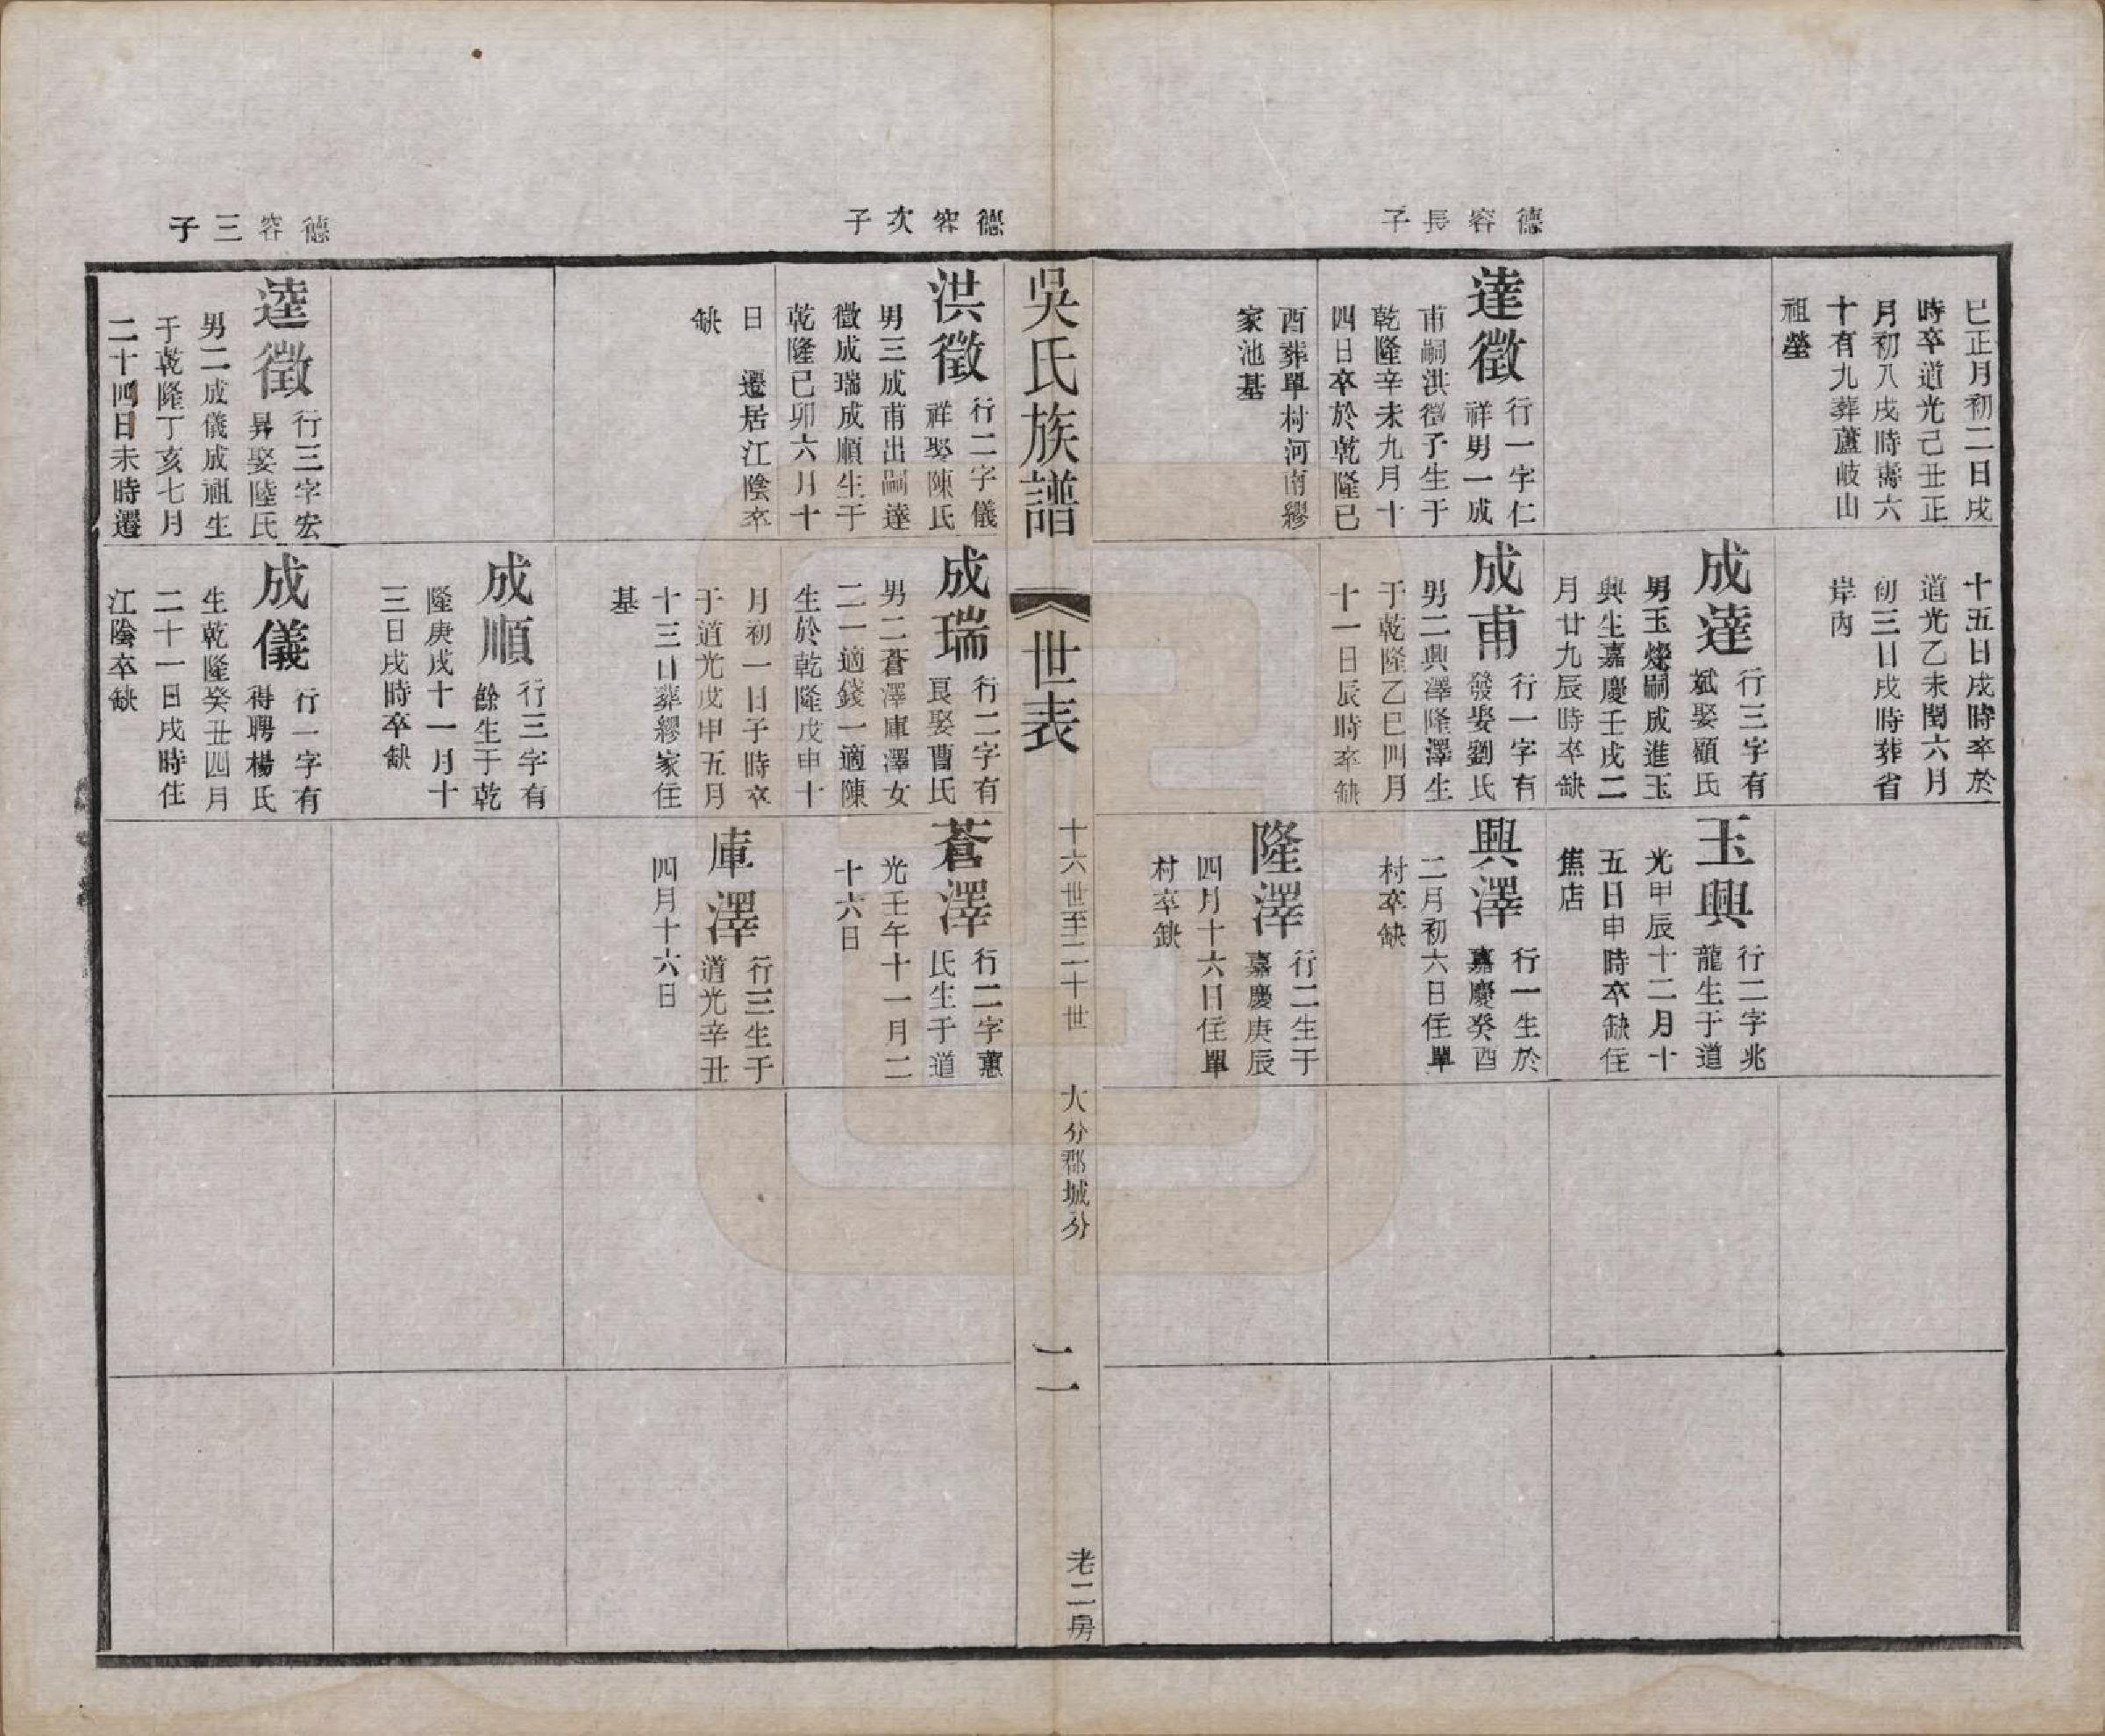 德容長子
巳正月初二日戌
時卒道光己丑正
月初八戌時壽六
十有九葬蘆岐山
祖塋
達徵
行一字仁
祥男一成
甫嗣洪徵子生于
乾隆辛未九月十
四日卒於乾隆己
酉葬單村河南繆
家池基
十五日戌時卒於
道光乙未閏六月
初三日戌時葬省
岸內
成達
行三字有
斌娶顧氏
男玉燦嗣成進玉
興生嘉慶壬戌二
月廿九辰時卒缺
成甫
行一字有
發娶劉氏
男二興澤隆澤生
于乾隆乙巳四月
十一日辰時卒缺
玉興
行二字兆
龍生于道
光甲辰十二月十
五日申時卒缺住
焦店
興澤
行一生於
嘉慶癸酉
二月初六日住單
村卒缺
隆澤
行二生于
嘉慶庚辰
四月十六日住單
村卒缺
吳氏族譜
世表
十六世至二十世
大分郡城分
二一
老二房
德容次子
德容三子
洪徵
行二字儀
祥娶陳氏
男三成甫出嗣達
徵成瑞成順生于
乾隆己卯六月十
日 遷居江陰卒
缺
逵徵
行三字宏
昇娶陸氏
男二成儀成祖生
于乾隆丁亥七月
二十四日未時遷
成瑞
行二字有
良娶曹氏
男二蒼澤庫澤女
二一適錢一適陳
生於乾隆戊申十
月初一日子時卒
于道光戊申五月
十三日葬繆家住
基
成順
行三字有
餘生于乾
隆庚戌十一月十
三日戌時卒缺
成儀
行一字有
得聘楊氏
生乾隆癸丑四月
二十一日戌時住
江陰卒缺
蒼澤
行二字蕙
氏生于道
光壬午十一月二
十六日
庫澤
行三生于
道光辛丑
四月十六日